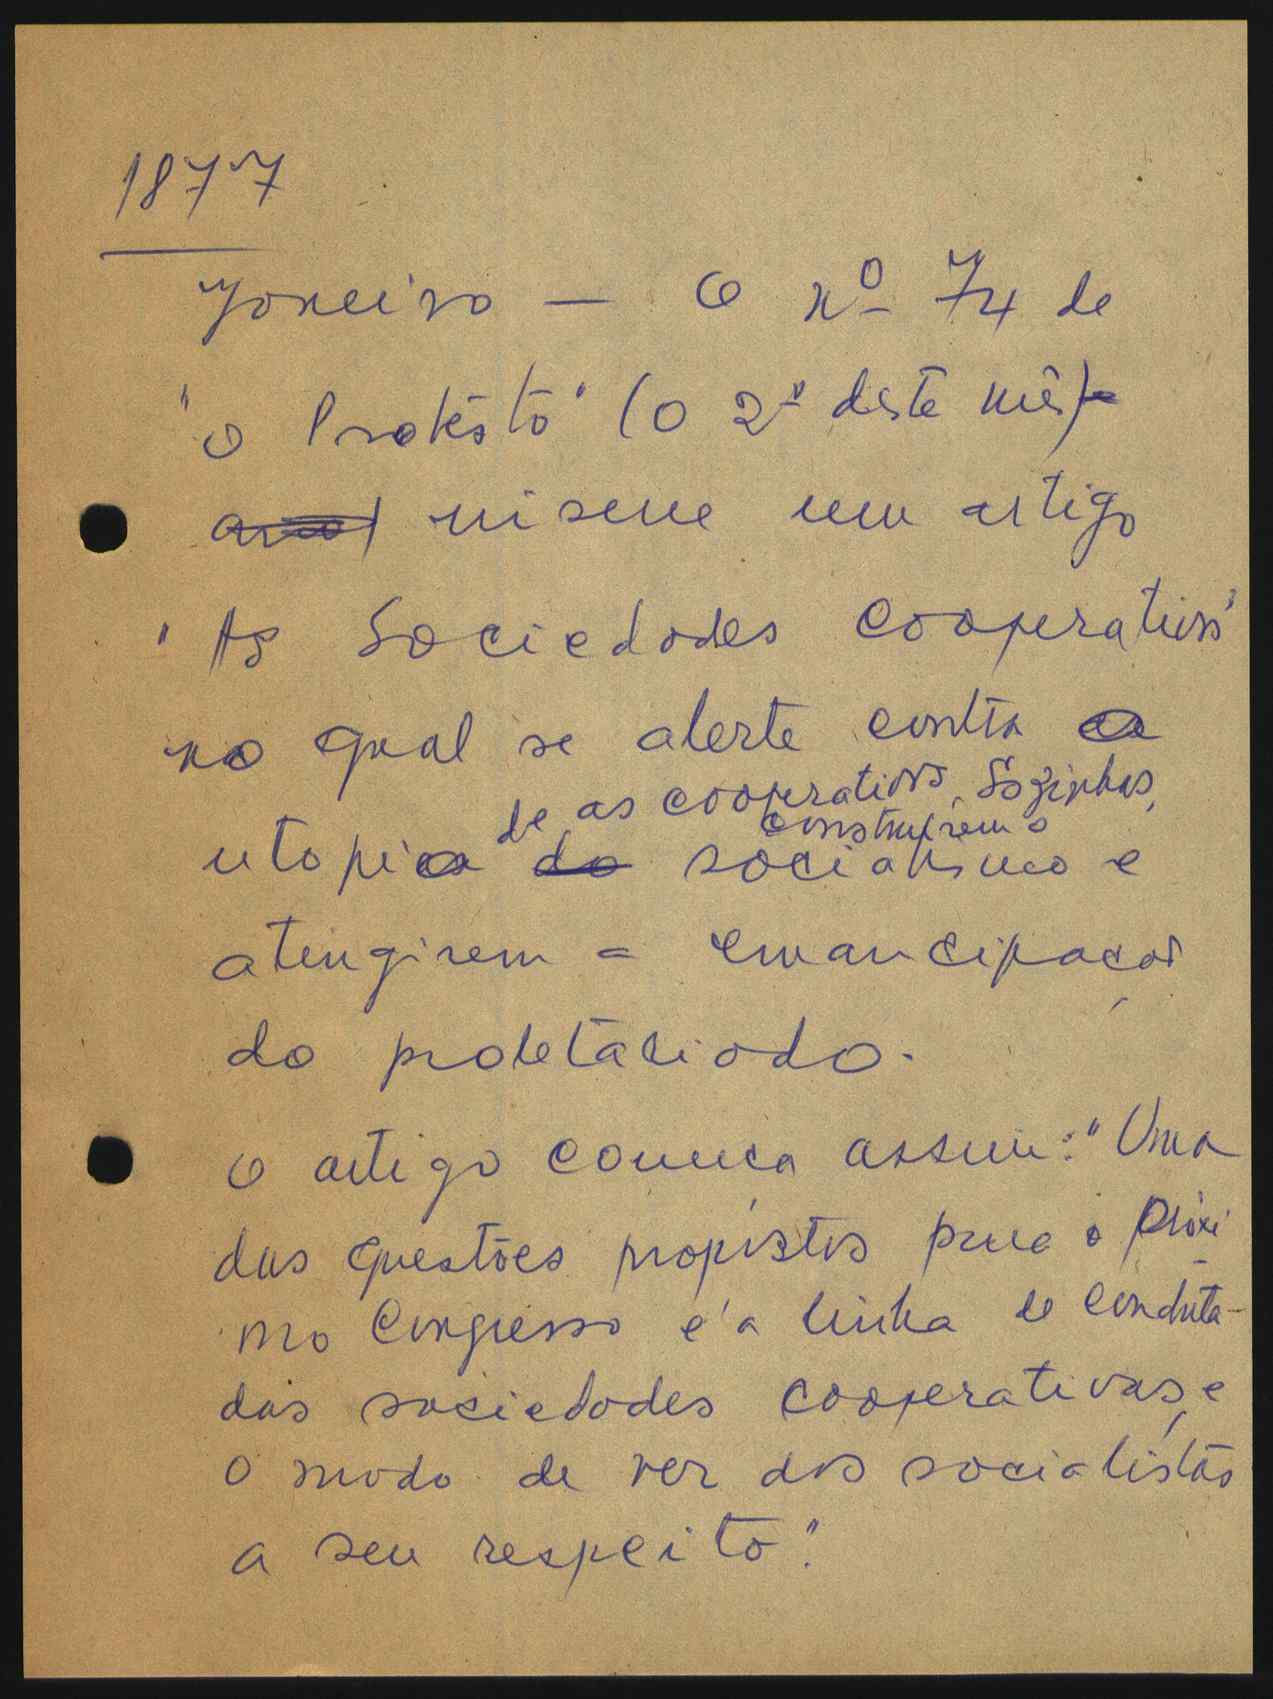 1877
Janeiro — O nº 74 de
"O Protesto" (o 2º deste mês)
insere um artigo
"As Sociedades Cooperativas"
no qual se alerta contra a
de as cooperativas, sòzinhas,
construírem o
utopia do socialismo e
atingirem a emancipação
do proletariado.
O artigo começa assim: "Uma
das questões propostas para o próxi
mo Congresso é a linha de conduta
das sociedades cooperativas, e
o modo de ver dos socialistas
a seu respeito".